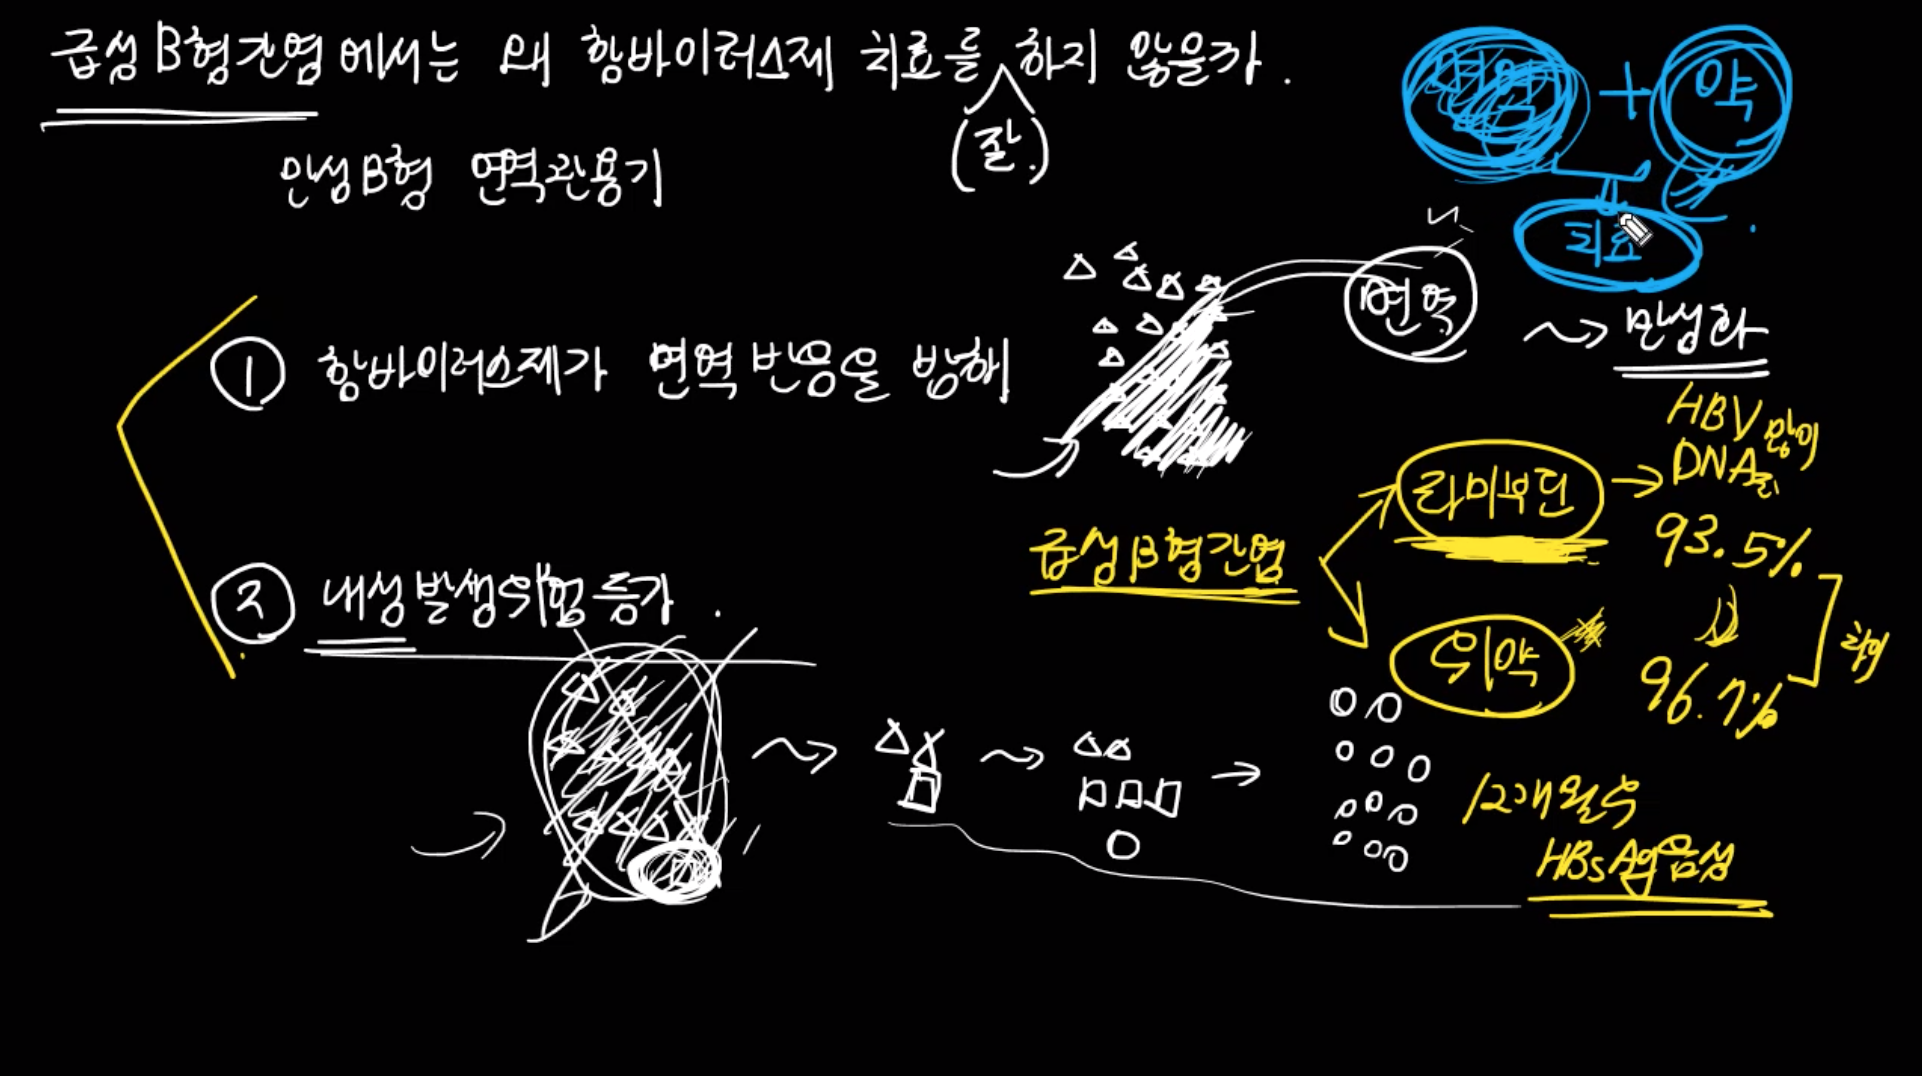 급성 B형간염에서는 왜 항바이러스제 치료를 하지 않을까.
(잘)
만성B형 면역관용기
면역 + 약
치료
① 항바이러스제가 면역 반응을 방해
면역
만성화
② 내성발생위험 증가.
급성B형간염
라미부딘
HBV
DNA 많이
93.5%
위약
96.7%
차이
12개월 후
HBsAg 음성